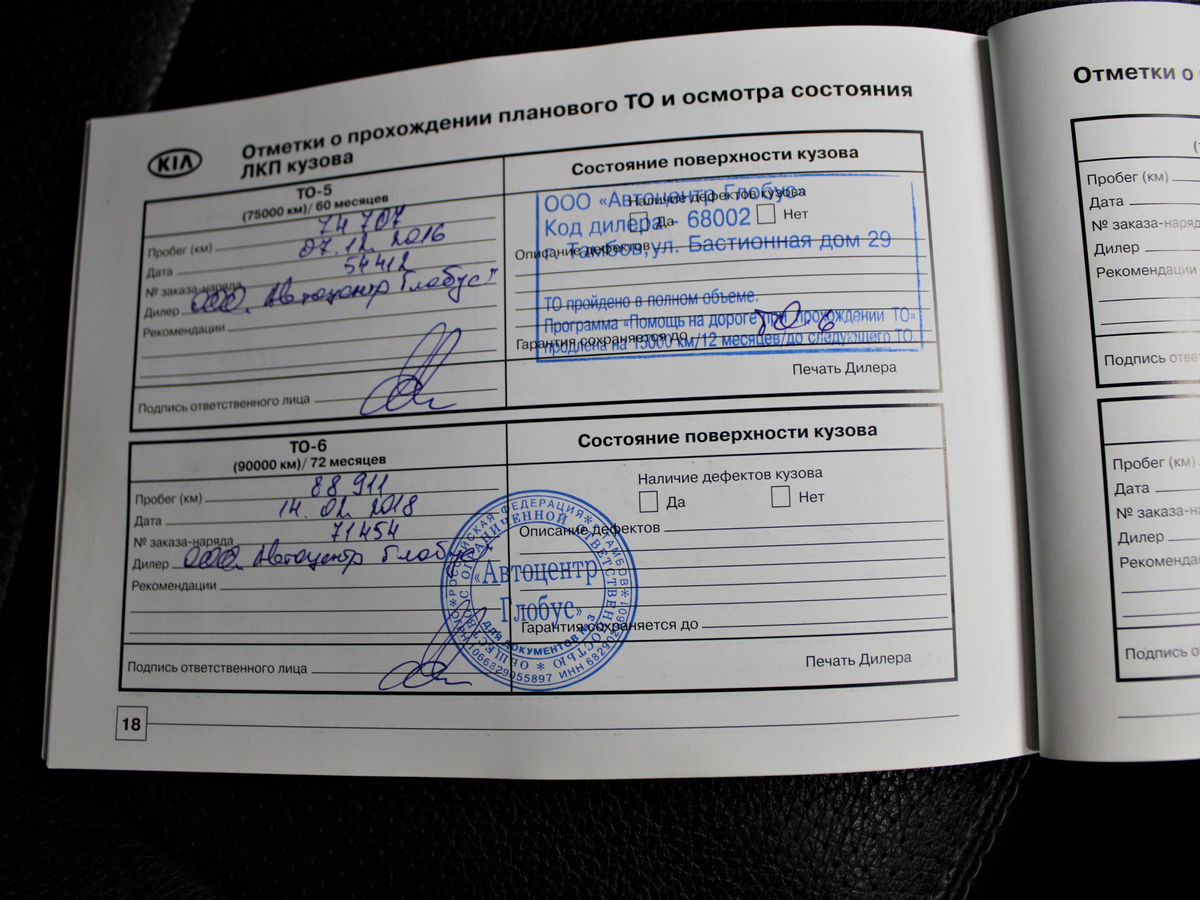 KIA
Отметки о прохождении планового ТО и осмотра состояния
ЛКП кузова
ТО-5
(75000 км)/ 60 месяцев
Пробег (км) 74 707
Дата 07.12.2016
№ заказа-наряда 54412
Дилер ООО. Автоцентр Глобус"
Рекомендации
Подпись ответственного лица
Состояние поверхности кузова
Наличие дефектов кузова
Да Нет
Описание дефектов
Гарантия сохраняется до ТО-6
Печать Дилера
ООО «Автоцентр Глобус»
Код дилера - 68002
г. Тамбов, ул. Бастионная дом 29
ТО пройдено в полном объеме.
Программа «Помощь на дороге при прохождении ТО»
продлена на 15000 км/12 месяцев/до следующего ТО
ТО-6
(90000 км)/ 72 месяцев
Пробег (км) 88 911
Дата 14.02.2018
№ заказа-наряда 71454
Дилер ООО. Автоцентр Глобус"
Рекомендации
Подпись ответственного лица
Состояние поверхности кузова
Наличие дефектов кузова
Да Нет
Описание дефектов
Гарантия сохраняется до
Печать Дилера
РОССИЙСКАЯ ФЕДЕРАЦИЯ * Г.ТАМБОВ *
С ОГРАНИЧЕННОЙ ОТВЕТСТВЕННОСТЬЮ * ОБЩЕСТВО
«Автоцентр
Глобус»
ДЛЯ ДОКУМЕНТОВ № 3
1066829055897 ИНН
18
Отметки о
Пробег (км)
Дата
№ заказа-наряд
Дилер
Рекомендации
Подпись отве
Пробег (км)
Дата
№ заказа-н
Дилер
Рекоменда
Подпись о